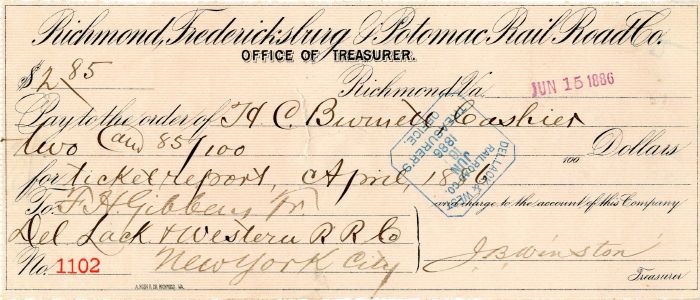 Richmond, Fredericksburg & Potomac Rail Road Co.
OFFICE OF TREASURER.
$2 85
Richmond, Va. JUN 15 1886
Pay to the order of H C Burnett Cashier
two and 85/100 100 Dollars
for ticket report, April 1886
To F. H. Gibbens Tr and charge to the account of this Company
Del. Lack. & Western R R Co
No. 1102 New York City J. B. Winston
Treasurer
DEL. LACK. & WEST.
RAILROAD CO.
JUN
1886
TREASURER'S
OFFICE.